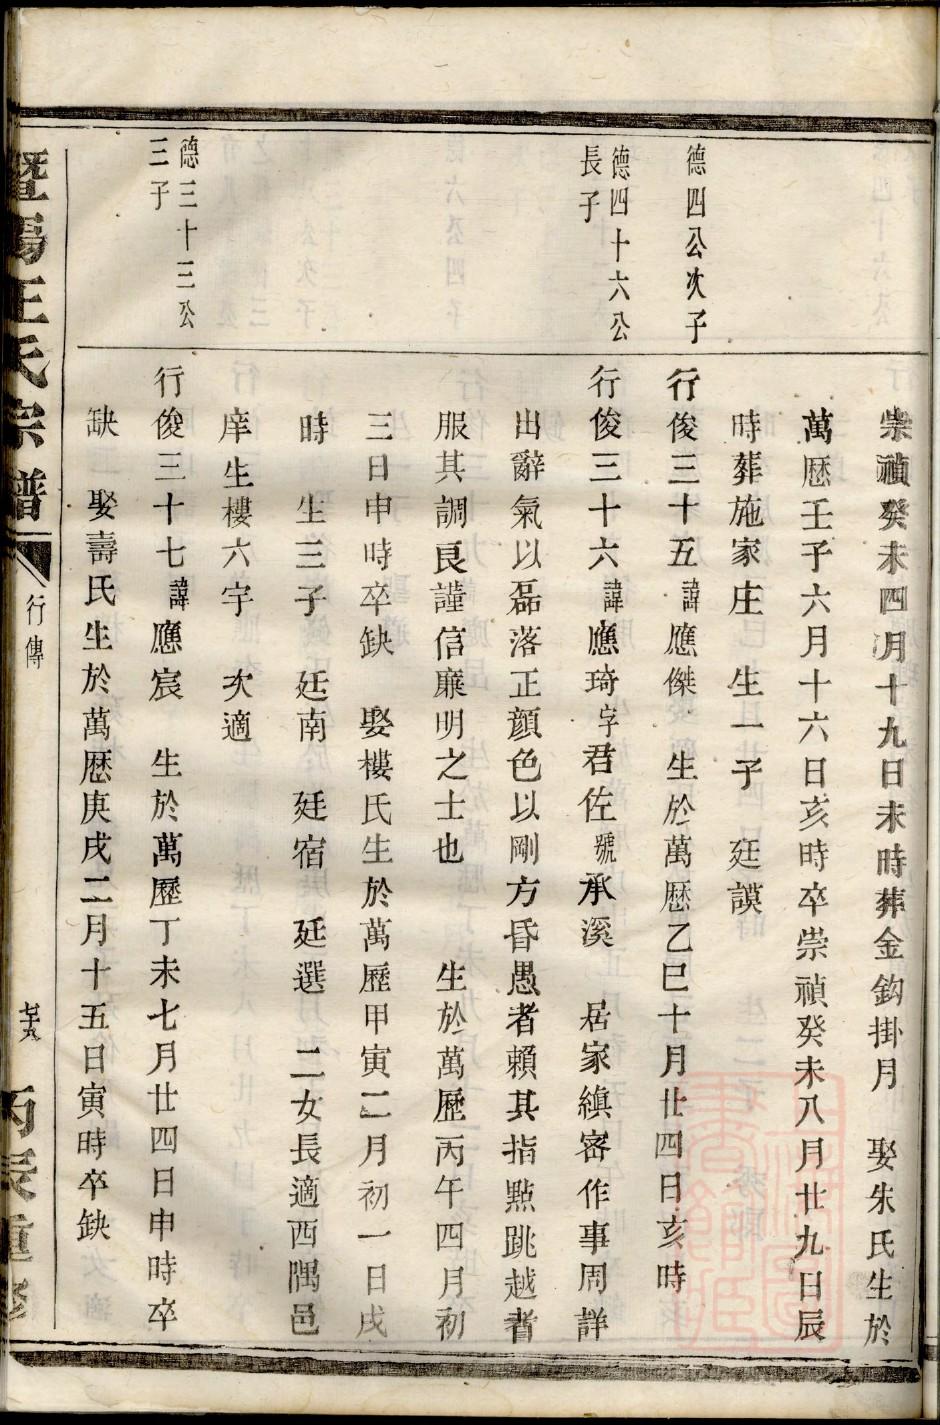 崇禎癸未四月十九日未時葬金鈎掛月　娶朱氏生於
萬歷壬子六月十六日亥時卒崇禎癸未八月廿九日辰
時葬施家庄　生一子　廷謨
德四公次子
行俊三十五諱應傑　生於萬歷乙巳十月廿四日亥時
德四十六公
長子
行俊三十六諱應琦字君佐號承溪　居家縝密作事周詳
出辭氣以磊落正顔色以剛方昏愚者賴其指點跳越者
服其調良謹信廉明之士也　生於萬歷丙午四月初
三日申時卒缺　娶樓氏生於萬歷甲寅二月初一日戌
時　生三子　廷南　廷宿　廷選　二女長適西隅邑
庠生樓六宇　次適
德三十三公
三子
行俊三十七諱應宸　生於萬歷丁未七月廿四日申時卒
缺　娶壽氏生於萬歷庚戌二月十五日寅時卒缺
暨陽王氏宗譜
行傳
丙辰重修